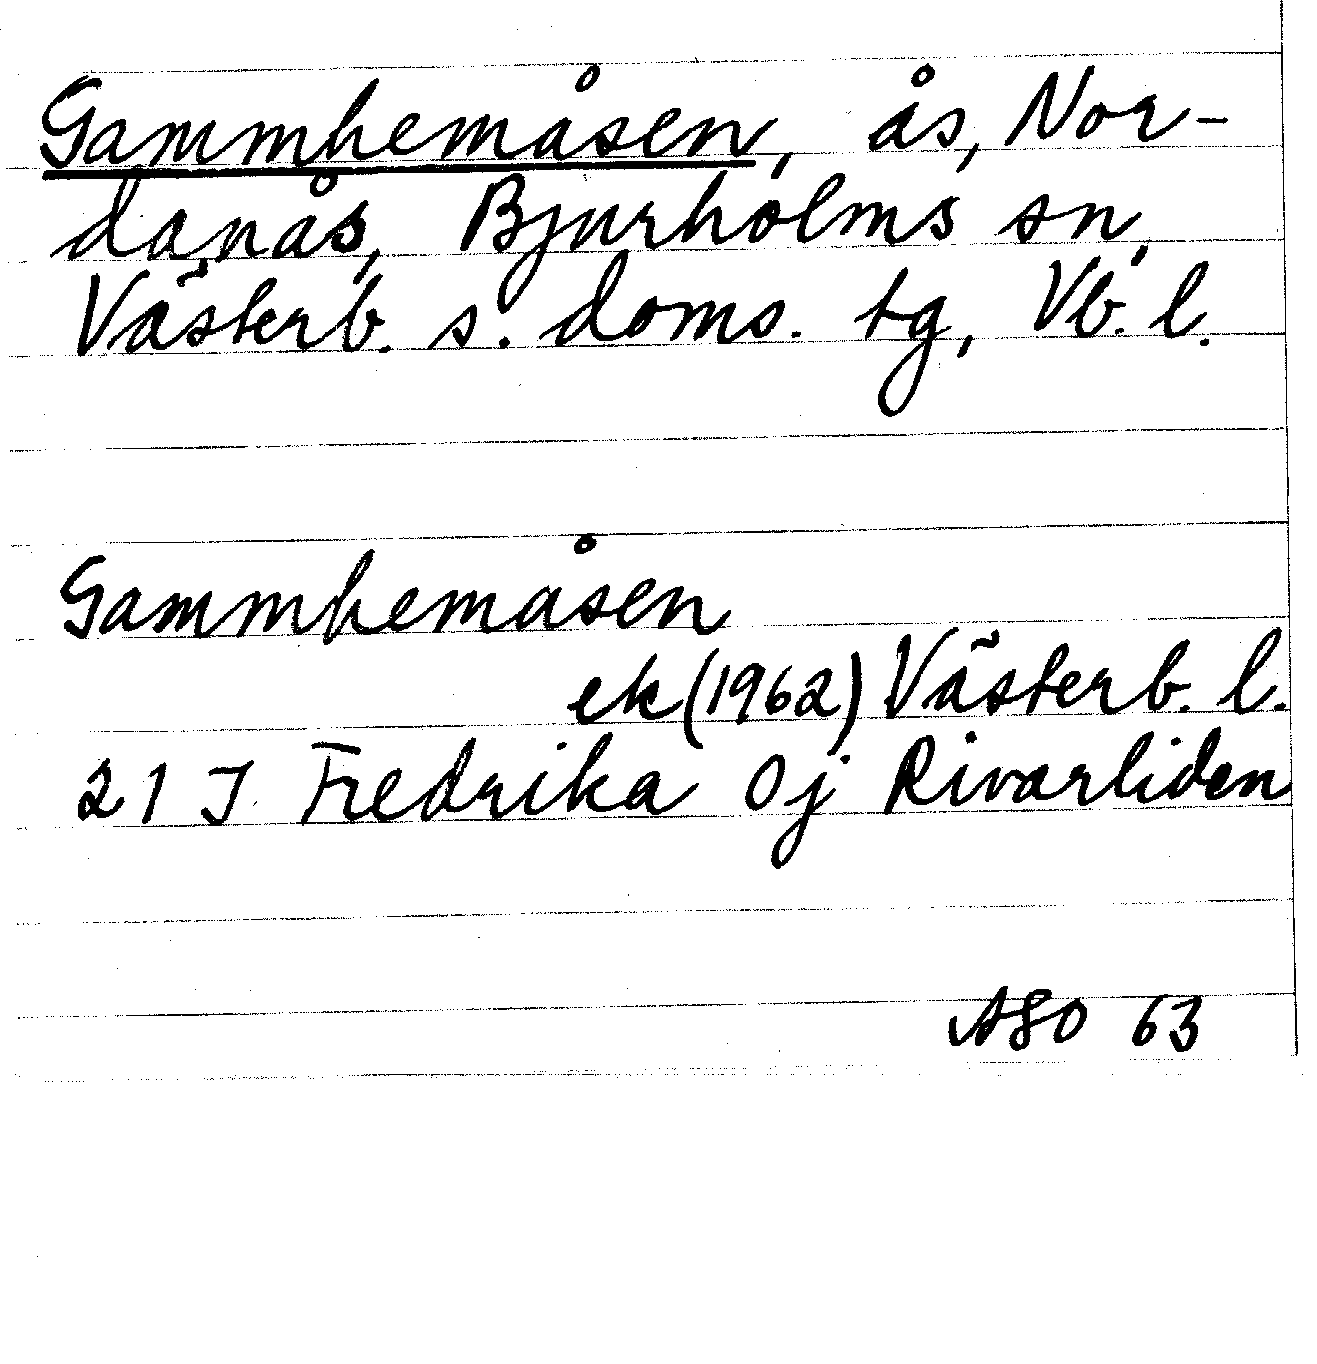 Gammhemåsen, ås, Nor-
danås, Bjurholms sn,
Västerb. s. doms. tg, Vb. l.
Gammhemåsen
ek (1962) Västerb. l.
21 J Fredrika 0j Rivarliden
ASO 63